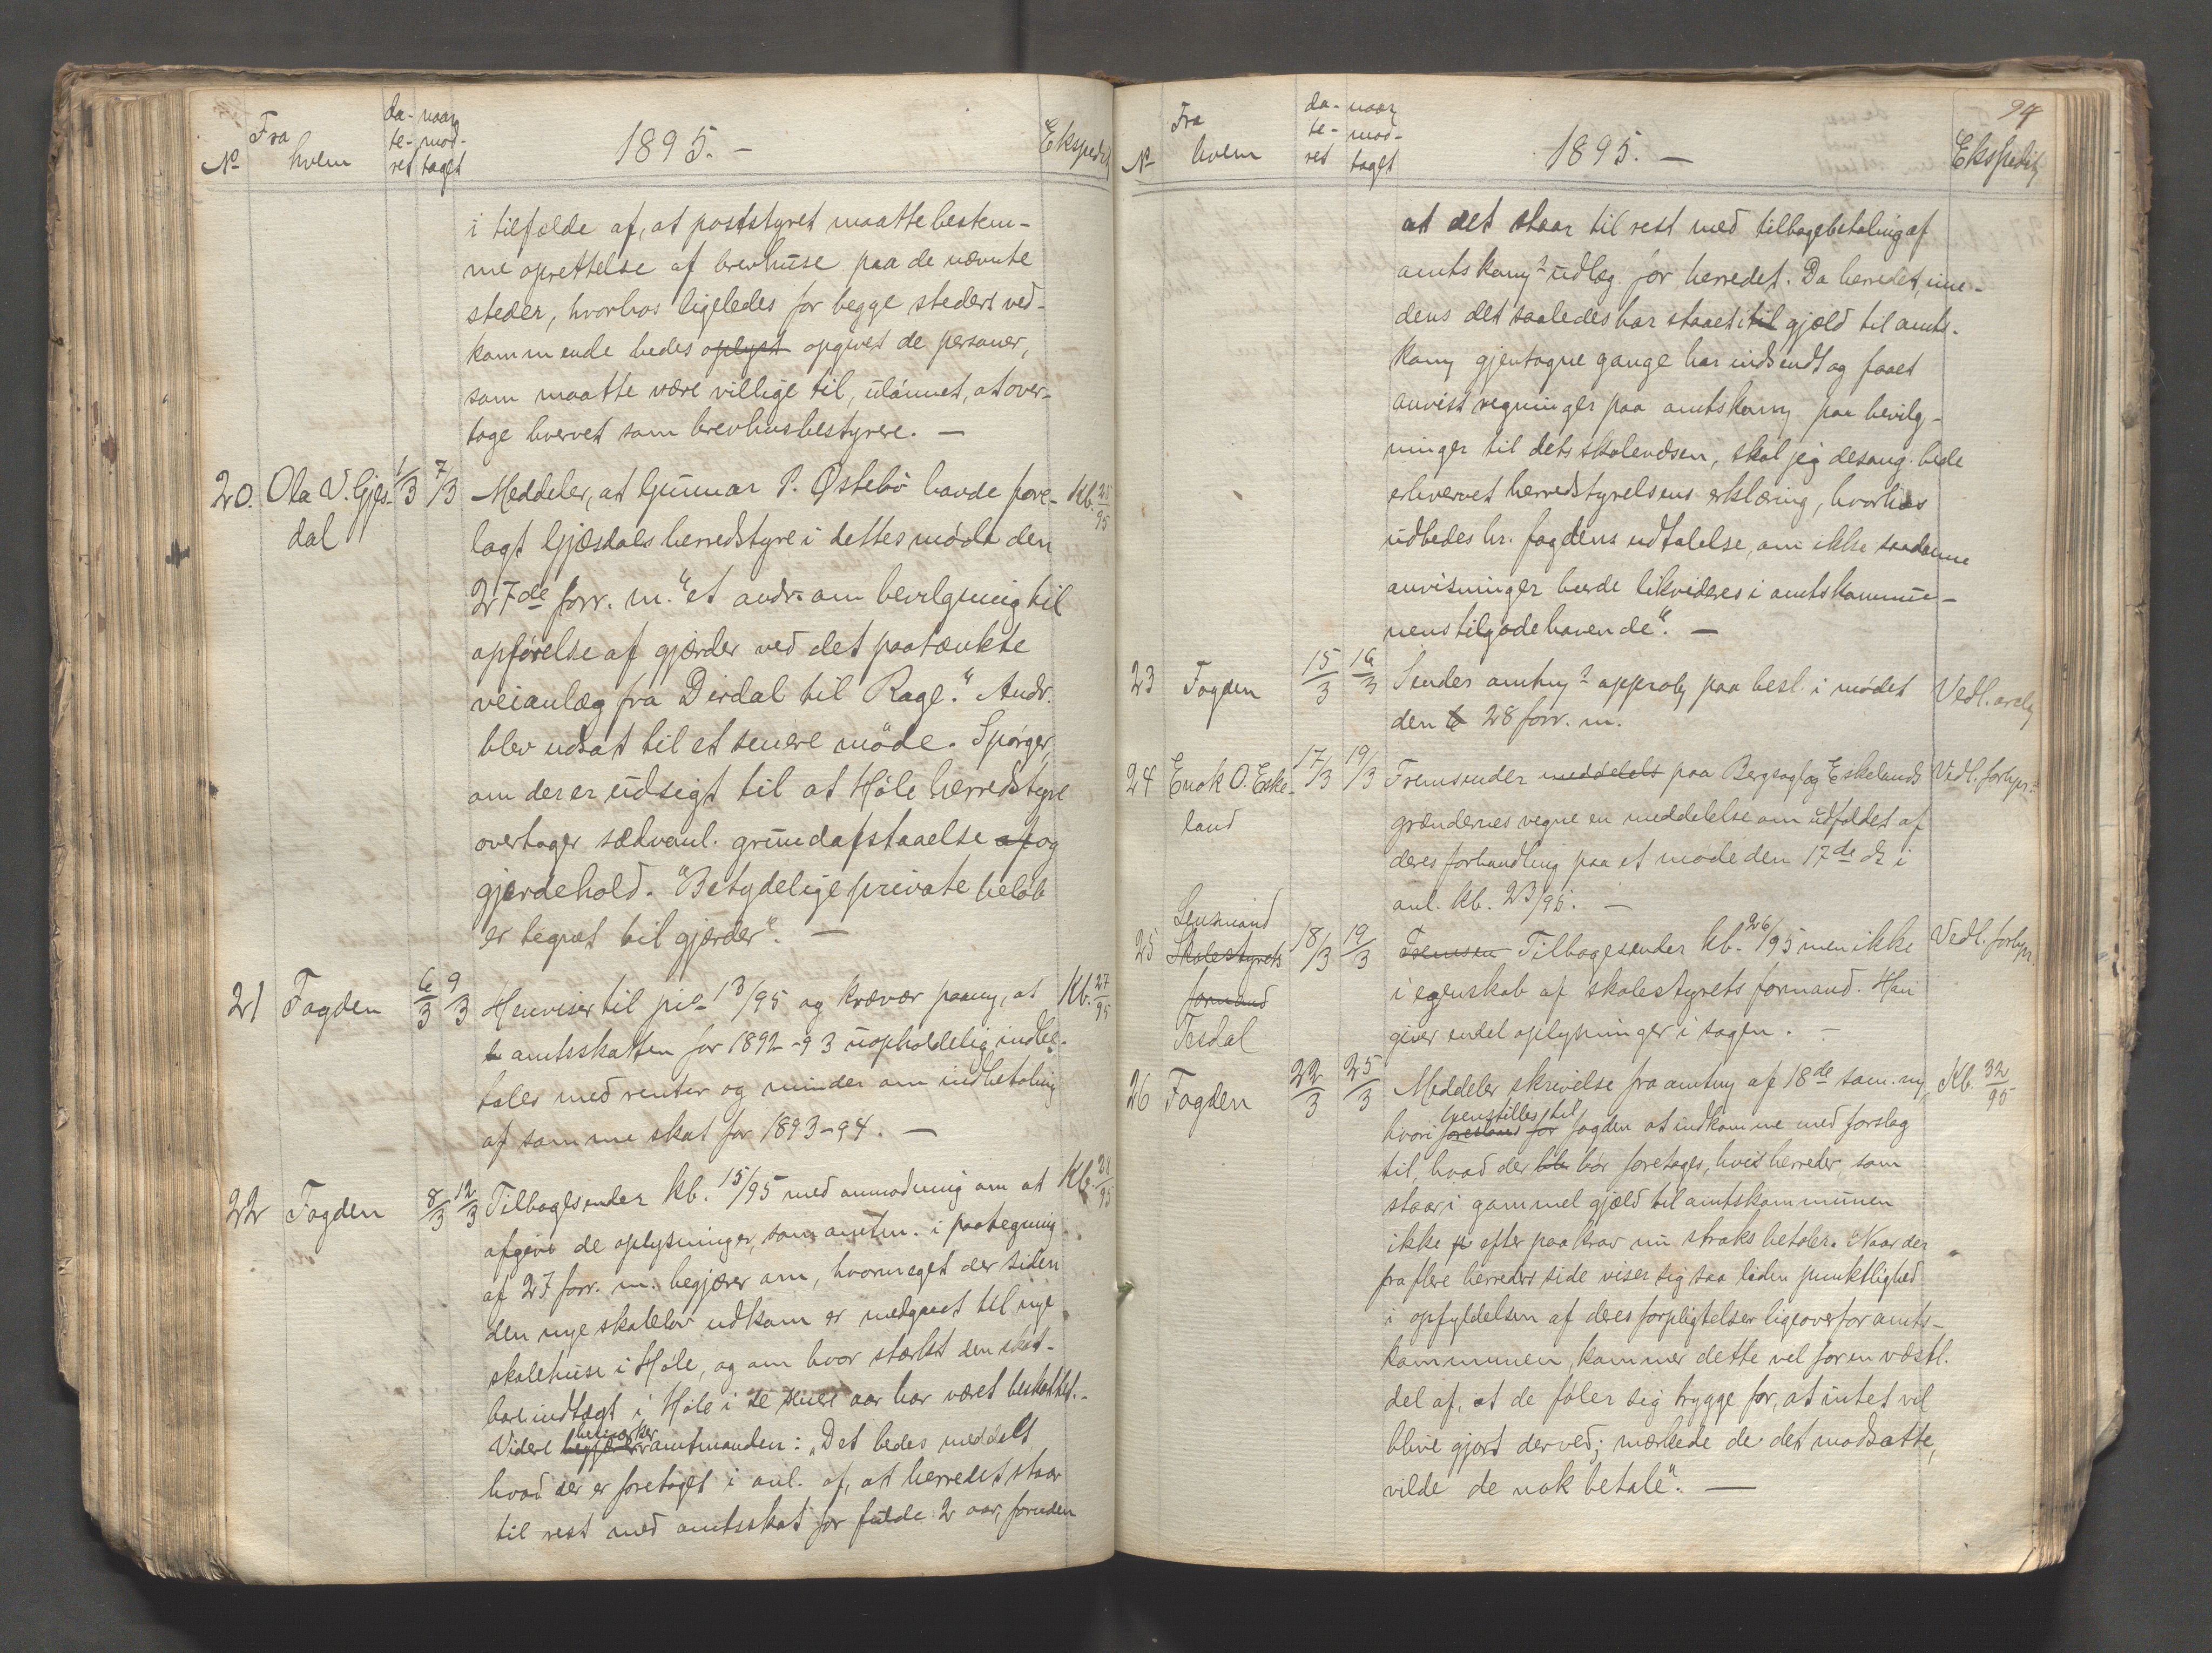 No Fra hvem da-te-ret naar mod-taget 1895. — Ekspedit
i tilfælde af, at poststyret maatte bestem-
me oprettelse af brevhuse paa de nævnte
steder, hvorhos ligeledes for begge steders ved-
kommende bedes oplyst opgivet de personer,
som maatte være villige til, ulønnet, at over-
tage hvervet som brevhusbestyrere. —
20. Ola V. Gjes-dal 1/3 7/3 Meddeler, at Gunnar P. Østebø havde fore- Kb. 25/95
lagt Gjæsdals herredstyre i dettes møde den
27de forr. m. "et andr. om bevilgning til
opførelse af gjærder ved det paatænkte
veianlæg fra Dirdal til Rage". Andr.
blev udsat til et senere møde. Spørger,
om der er udsigt til at Høle herredstyre
overtager sædvanl. grundafstaaelse af og
gjerdehold. "Betydelige private beløb
er tegnet til gjærder". —
21 Fogden 6/3 9/3 Henviser til 13/95 og kræver paany, at Kb. 27/95
amtsskatten for 1892-93 uopholdelig indbe-
tales med renter og minder om indbetaling
af samme skat for 1893-94. —
22 Fogden 8/3 12/3 Tilbagesender kb. 15/95 med anmodning om at Kb. 28/95
afgive de oplysninger, som amtm. i paategning
af 27 forr. m. begjærer om, hvormeget der siden
den nye skolelov udkom er medgaaet til nye
skolehuse i Høle, og om hvor stærkt den skat-
bare indtægt i Høle i de senere aar har været beskattet.-
Videre begjærer bemerker amtmanden: "Det bedes meddelt
hvad der er foretaget i anl. af, at herredet staar
til rest med amtsskat for fulde 2 aar, foruden
94
No Fra hvem da-te-ret naar mod-taget 1895. — Ekspedit
at det staar til rest med tilbagebetaling af
amtskom. udlæg for herredet. Da herredet, ime-
dens det saaledes har staaet i til gjæld til amts-
kom. gjentagne gange har indsendt og faaet
anvist regninger paa amtskom. paa bevilg-
ninger til dets skolevæsen, skal jeg desang. bede
erhvervet herredstyrelsens erklæring, hvorhos
udbedes hr. fogdens udtalelse, om ikke saadanne
anvisninger burde likvideres i amtskommu-
nens tilgodehavende". —
23 Fogden 15/3 16/3 Sender amtm. approb. paa besl. i mødet Vedl.
den 6 28 forr. m.
24 Enok O. Eske-land 17/3 19/3 Fremsender meddelels paa Bergsagl og Eskelands Vedl. forhpr.
grændernes vegne en meddelelse om udfaldet af
deres forhandling paa et møde den 17de ds i
anl. kb. 23/95. —
25 Lensmand Skolestyrets formand Tesdal 18/3 19/3 Fremsen Tilbagesender kb. 26/95 men ikke Vedl. forhpr.
i egenskab af skolestyrets formand. Han
giver endel oplysninger i sagen. —
26 Fogden 22/3 25/3 Meddeler skrivelse fra amtm. af 18de sam. m., Kb. 32/95
hvori foreslaaes for henstilles til fogden at indkomme med forslag
til, hvad der bør foretages, hvis herreder, som
staar i gammel gjæld til amtskommunen
ikke efter paakrav nu straks betaler. "Naar der
fra flere herreders side viser sig saa liden punktlighed
i opfyldelsen af deres forpligtelser ligeoverfor amts-
kommunen, kommer dette vel for en væstl.
del af, at de føler sig trygge for, at intet vil
blive gjort derved; mærkede de det modsatte,
vilde de nok betale". —